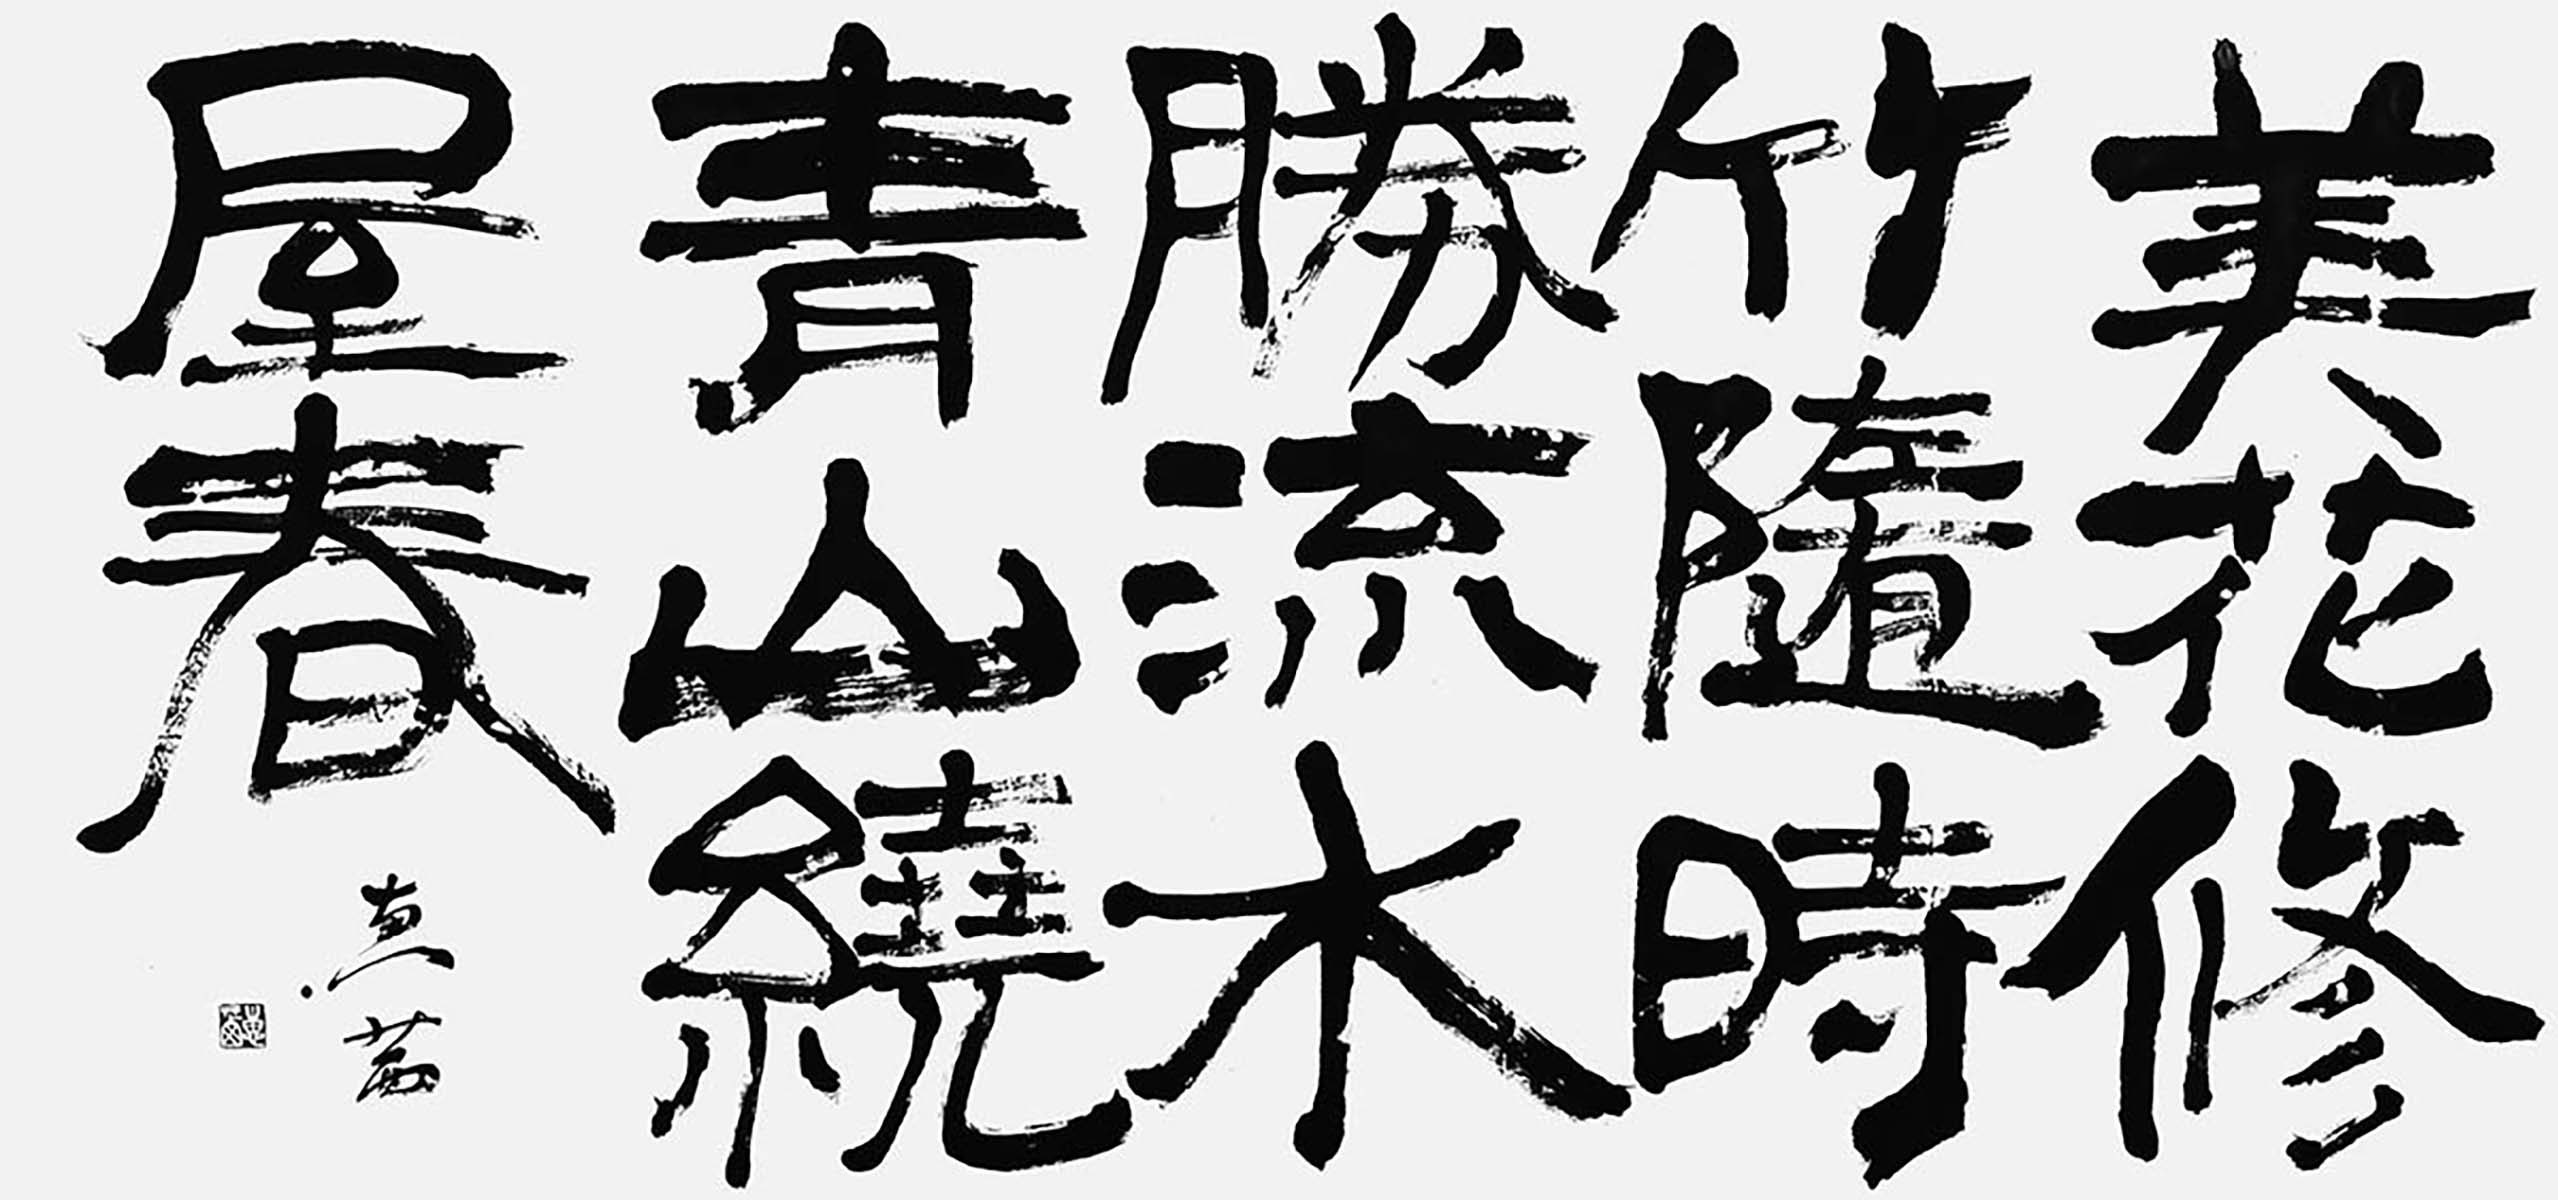 美花修
竹隨時
勝流水
青山繞
屋春